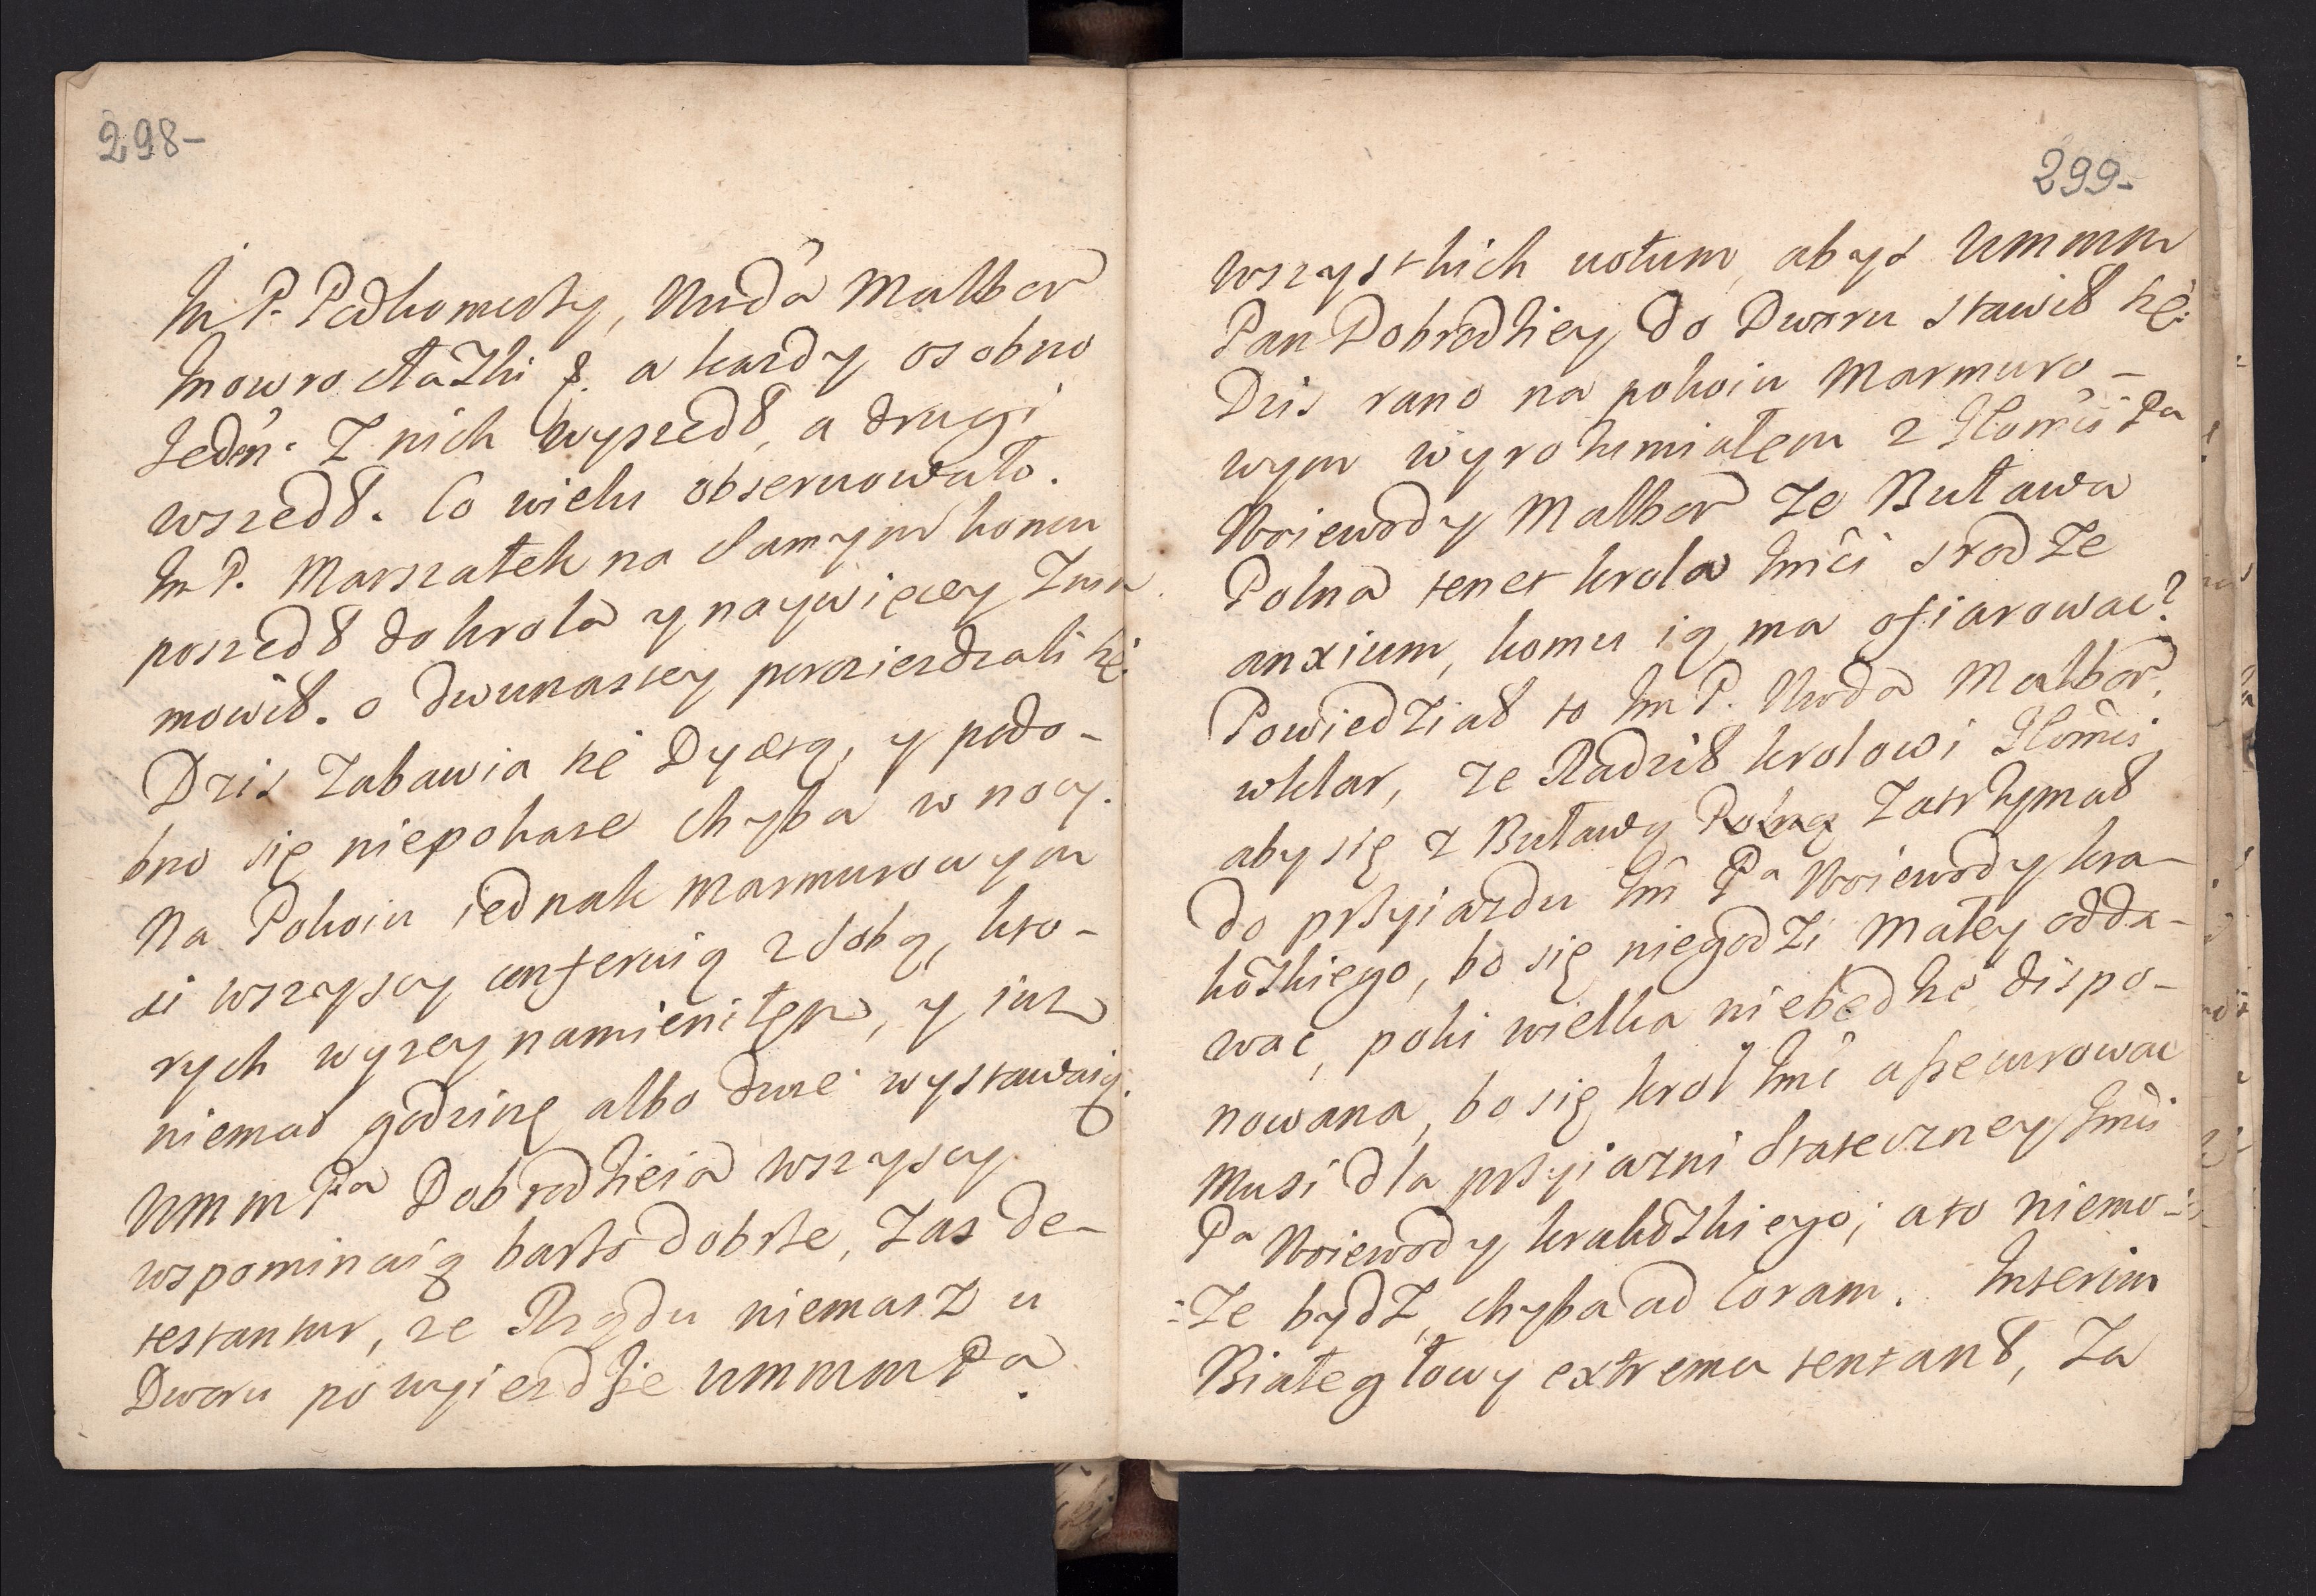 298-
Im P. Podkomorzy, Wuda Malbor
Inowrocłazki & a kazdy osobno
Jeden. Z nich wyszedł, a drugi
wszedł. Co wielu obseruowało.
Im P. Marszałek na samym koncu
poszedł do krola y naywięcey Znim
mowił. o dwunastey poroziezdzali się.
Dzis Zabawia się Dyetą, y podo-
bno się niepokaze chyba w nocy.
Na Pokoiu iednak Marmurowym
ci wszyscy conferuią z sobą, kto-
rych wyzey namieniłem, y iuz
niemas godzinę albo dwie wystawaią.
UMMMPa Dobrodzieia wszyscy
wspominaią barzo dobrze, Zas de-
testantur, ze Rządu niemasz u
Dworu po wyiezdzie UMMMMPa.
299-
wszystkich uotum, abys UMMMM
Pan Dobrodziey do Dworu stawił się.
Dzis rano na pokoiu Marmuro-
wym wyrozumiałem z JJomci Pa
Woiewody Malbor Ze Buława
Polna tenet krola Imci srodze
anxium, komu ią ma ofiarowac?
Powiedział to Im P. Woda Malbor,
wklar, ze Radził krolowi JJomci
aby się z Buławą Polną Zatrzymał
do przyiazdu Im Pa Woiewody kra-
kozkiego, bo się niegodzi Małey odda-
wac, poki wielka niebędzie dispo-
nowana, bo się krol Imc assecurowac
Musi dla przyiazni stateczney Imci
Pa Woiewody krakozkiego; a to niemo-
:Ze bydz, chyba ad Coram. Interim
Białegłowy extrema tentant, Za